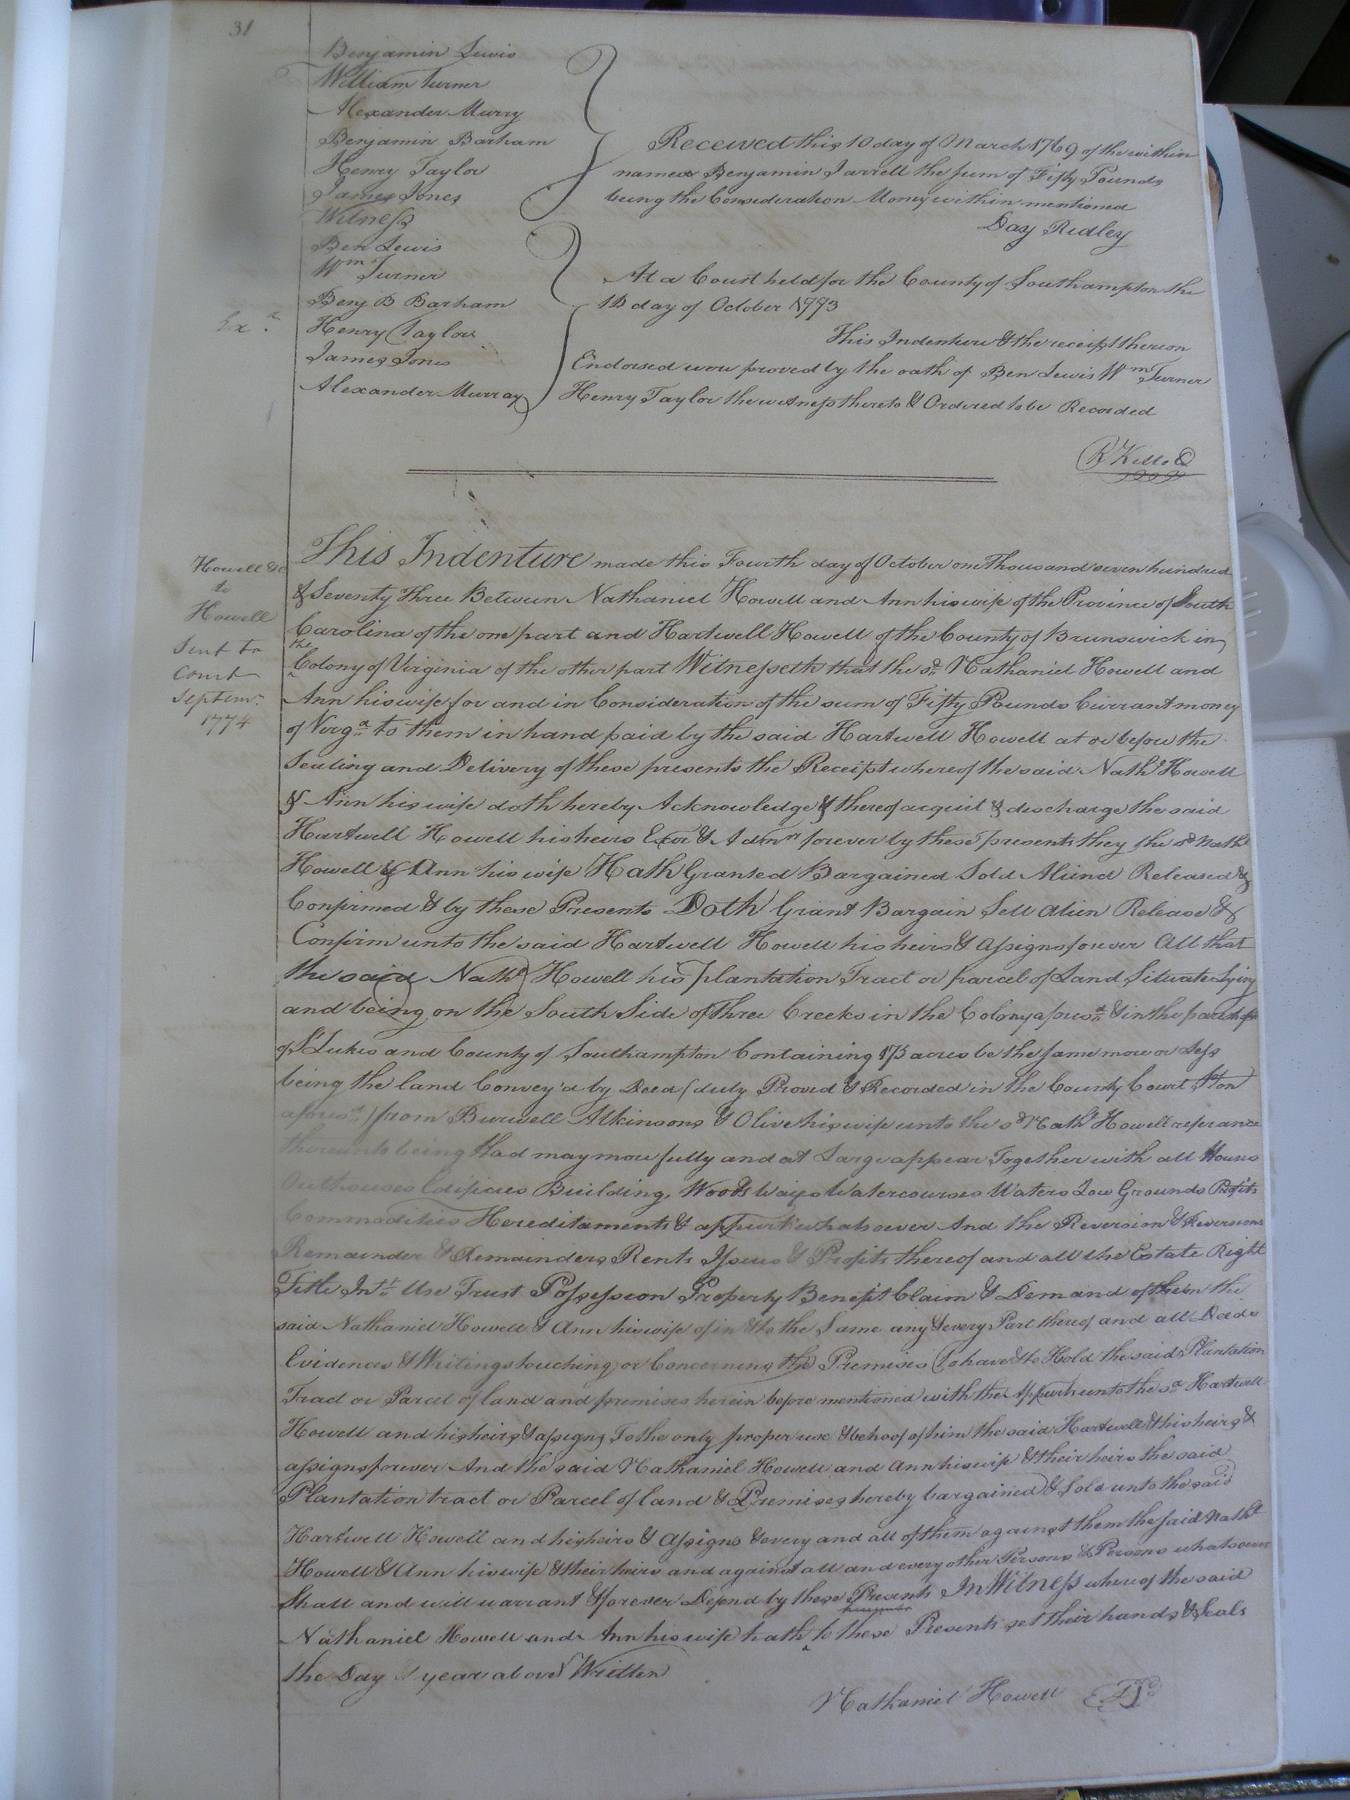 31
Benjamin Lewis
William Turner
Alexander Murry
Benjamin Barham
Henry Taylor
James Jones
Received this 10 day of March 1769 of the within
named Benjamin Jarrell the sum of Fifty Pounds
being the Consideration Money within mentioned
Day Ridley
Witness
Ben Lewis
Wm Turner
Benj B Barham
Henry Taylor
James Jones
Alexander Murray
Exa
At a Court held for the County of Southampton the
day of October 1773
This Indenture & the receipt thereon
Endorsed were proved by the oath of Ben Lewis Wm Turner
Henry Taylor the witness thereto & Ordered to be Recorded
R Kello C
Howell &c
to
Howell
Sent to
Court
Septemr
1774
This Indenture made this Fourth day of October one Thousand seven hundred
& Seventy Three Between Nathaniel Howell and Ann his wife of the Province of South
Carolina of the one part and Hartwell Howell of the County of Brunswick in
the Colony of Virginia of the other part Witnesseth that the sd Nathaniel Howell and
Ann his wife for and in Consideration of the sum of Fifty Pounds Currant money
of Virga to them in hand paid by the said Hartwell Howell at or before the
Sealing and Delivery of these presents the Receipt whereof the said Nath Howell
& Ann his wife doth hereby Acknowledge & thereof acquit & discharge the said
Hartwell Howell his heirs Exor & Admr forever by these presents they the sd Nathl
Howell & Ann his wife Hath Granted Bargained Sold Aliend Released &
Confirmed & by these Presents Doth Grant Bargain Sell Alien Release &
Confirm unto the said Hartwell Howell his heirs & assigns forever All that
the said Nathl Howell his plantation Tract or parcel of Land Situate Lying
and being on the South Side of Three Creeks in the Colony aforesd & in the parish
of St Lukes and County of Southampton Containing 175 acres be the same more or Less
being the land Convey'd by Deed (duly Proved & Recorded in the County Court Ston
aforesd) from Burwell Atkinsons & Olive his wife unto the sd Nathl Howell referance
thereunto being had may more fully and at Large appear Together with all Houses
Outhouses Edifices Building, Woods Ways Watercourses Waters Low Grounds Profits
Commodities Hereditaments & appurts whatsoever And the Reversion & Reversions
Remainder & Remainders Rents Issues & Profits thereof and all the Estate Right
Title Intt Use Trust Possession Property Benefit Claim & Demand of them the
said Nathaniel Howell & Ann his wife of in & to the Same any & every Part thereof and all Deeds
Evidences & Writings touching or Concerning the Premises To have & to Hold the said Plantation
Tract or Parcel of land and premises herein before mentioned with the Appurts unto the sd Hartwell
Howell and his heirs & assigns To the only proper use & behoof of him the said Hartwell & his heirs &
assigns forever And the said Nathaniel Howell and Ann his wife & their heirs the said
Plantation tract or Parcel of land & Premises hereby bargained & Sold unto the said
Hartwell Howell and his heirs & Assigns & every and all of them against them the said Nathl
Howell & Ann his wife & their heirs and against all and every other Persons & Persons whatsoever
Shall and will warrant & forever Defend by these Presents In Witness whereof the said
Nathaniel Howell and Ann his wife hath to these Presents set their hands & Seals
the Day & year above Written
Nathaniel Howell